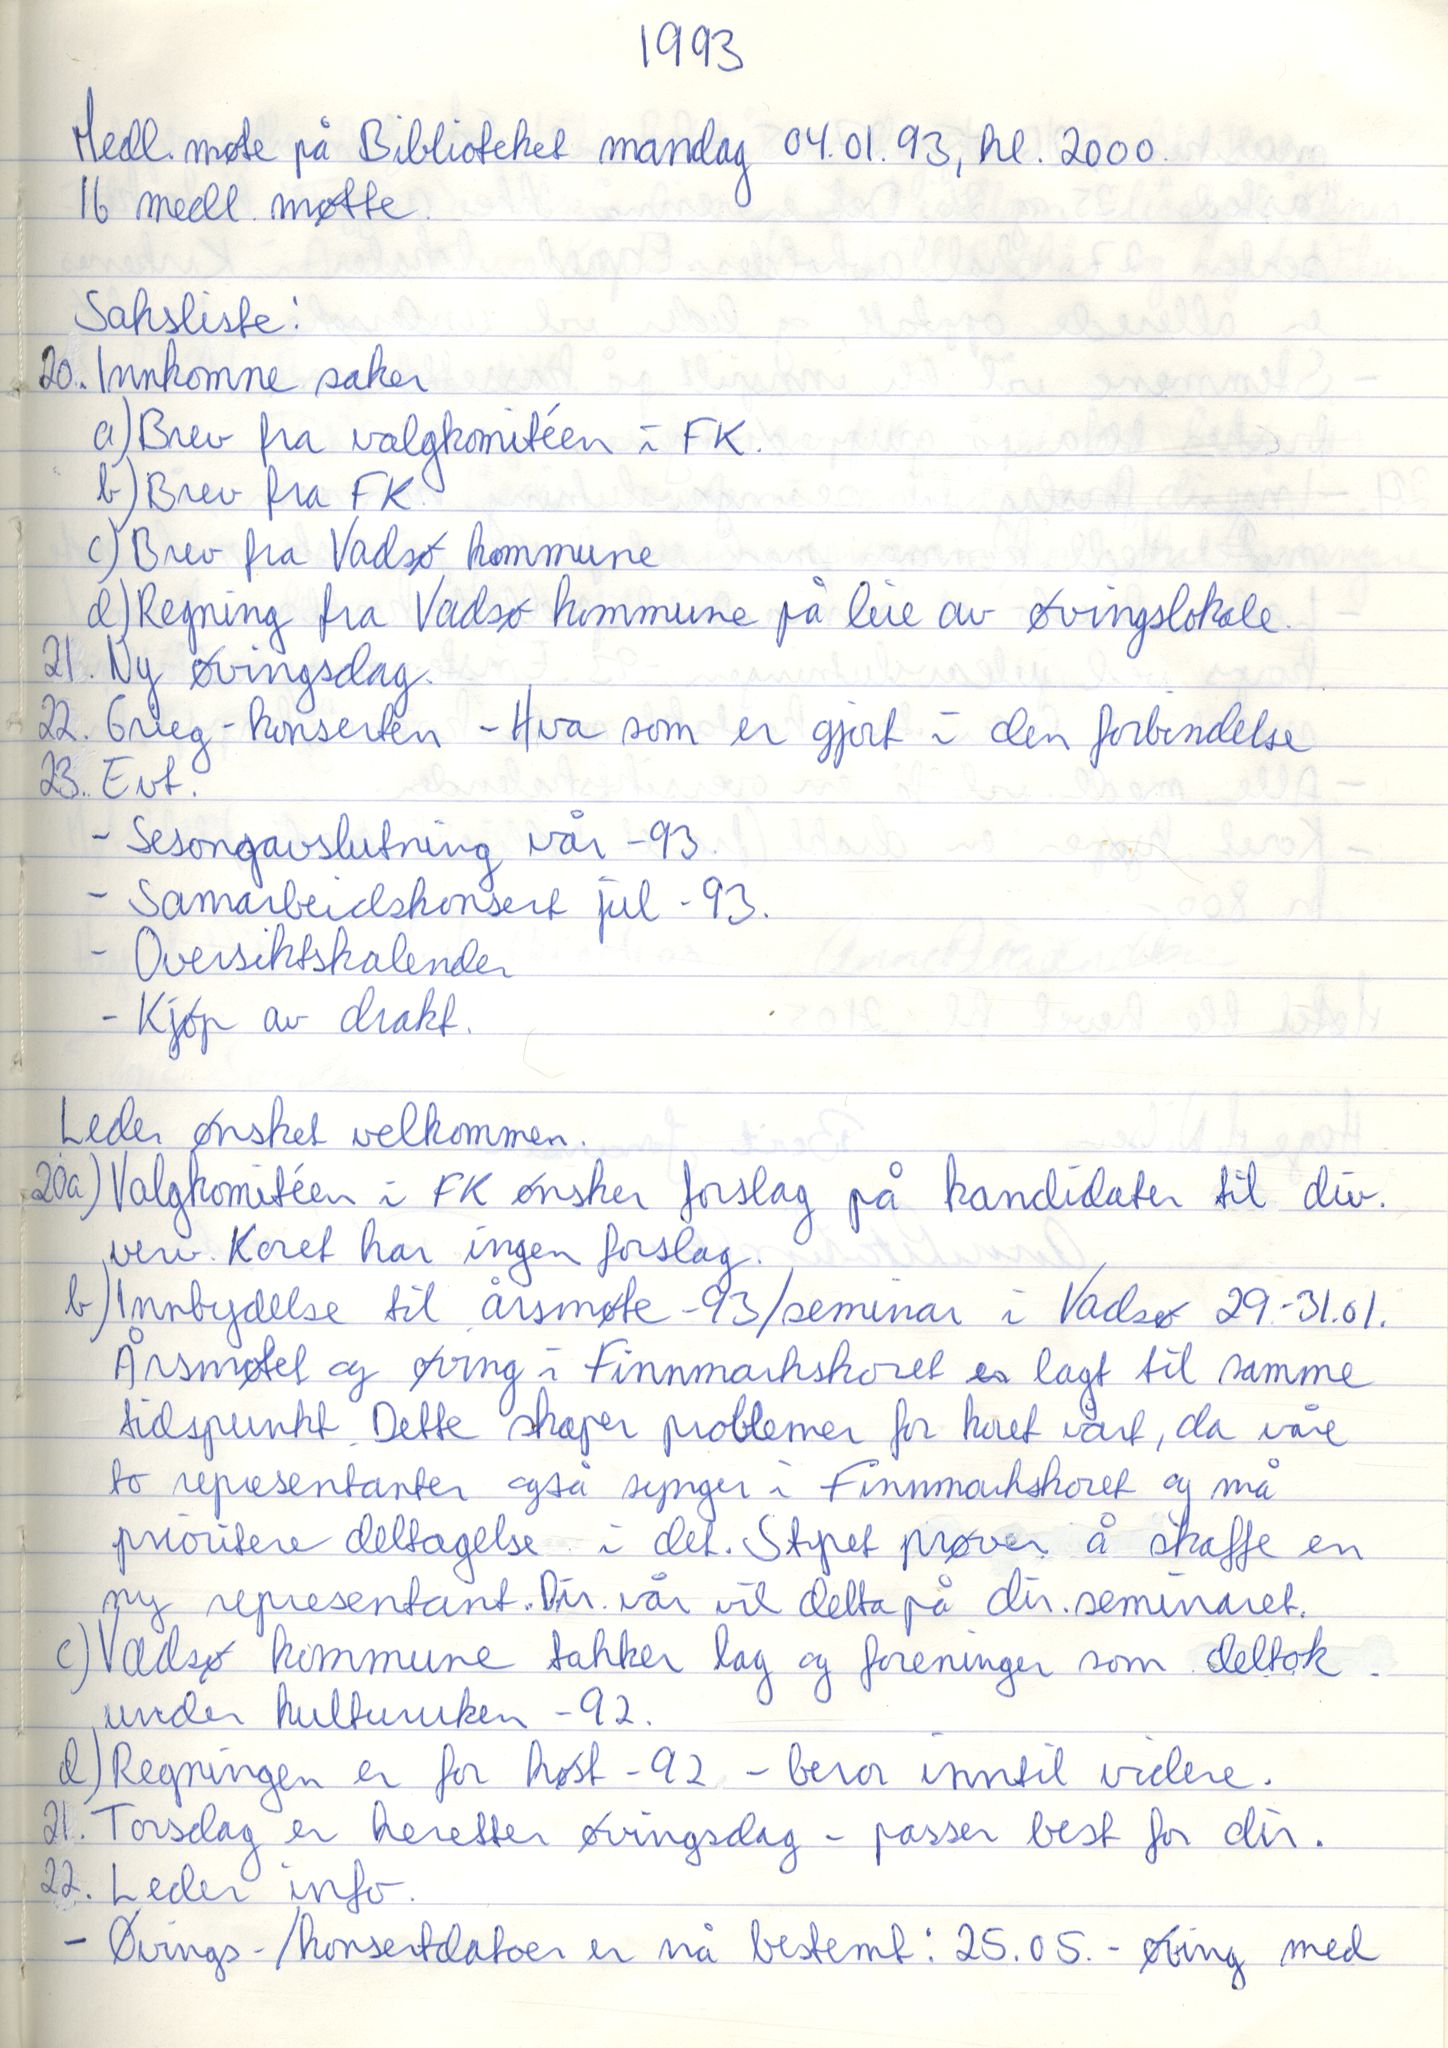 1993
Medl. møte på Biblioteket mandag 04.01.93, kl. 2000.
16 medl. møtte.
Saksliste:
20. Innkomne saker
a) Brev fra valgkomitéen i FK.
b) Brev fra FK.
c) Brev fra Vadsø kommune
d) Regning fra Vadsø kommune på leie av øvingslokale.
21. Ny øvingsdag.
22. Grieg-konserten - Hva som er gjort i den forbindelse
23. Evt.
- Sesongavslutning vår -93.
- Samarbeidskonsert jul -93.
- Oversiktskalender
- Kjøp av drakt.
Leder ønsket velkommen.
20a) Valgkomitéen i FK ønsker forslag på kandidater til div.
verv. Koret har ingen forslag.
b) Innbydelse til årsmøte -93/seminar i Vadsø 29.-31.01.
Årsmøtet og øving i Finnmarkskoret er lagt til samme
tidspunkt. Dette skaper problemer for koret vårt, da våre
to representanter også synger i Finnmarkskoret og må
prioritere deltagelse i det. Styret prøver å skaffe en
ny representant. Dir. vår vil delta på dir.seminaret.
c) Vadsø kommune takker lag og foreninger som deltok
under kulturuken -92.
d) Regningen er for høst -92 - beror inntil videre.
21. Torsdag er heretter øvingsdag - passer best for dir.
22. Leder info.
- Øvings-/konsertdatoer er nå bestemt: 25.05. - øving med